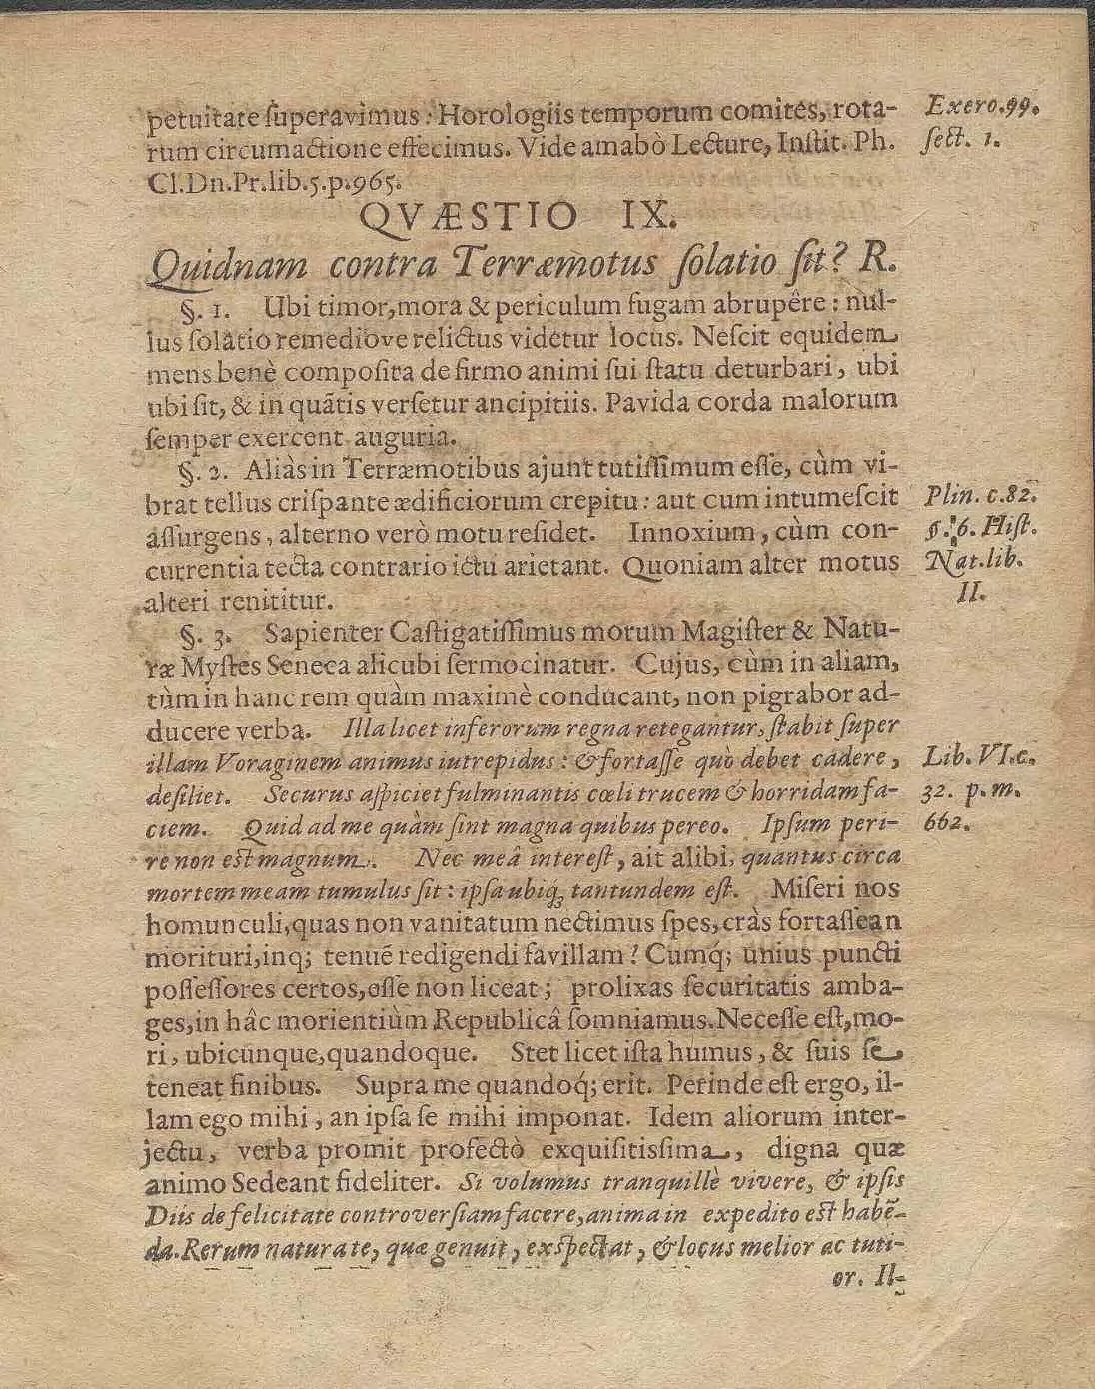 petuitate ſuperavimus: Horologiis temporum comites, rota-
rum circumactione effecimus. Vide amabò Lecture, Inſtit. Ph.
Cl. Dn. Pr. lib. 5. p. 965.
Exero. 99.
ſect. 1.
QVÆSTIO IX.
Quidnam contra Terræmotus ſolatio ſit? R.
§. 1. Ubi timor, mora & periculum fugam abrupêre: nul-
lus ſolatio remediove relictus videtur locus. Neſcit equidem
mens benè compoſita de firmo animi ſui ſtatu deturbari, ubi
ubi ſit, & in quãtis verſetur ancipitiis. Pavida corda malorum
ſemper exercent auguria.
§. 2. Aliàs in Terræmotibus ajunt tutiſſimum eſſe, cùm vi-
brat tellus criſpante ædificiorum crepitu: aut cum intumeſcit
aſſurgens, alterno verò motu reſidet. Innoxium, cùm con-
currentia tecta contrario ictu arietant. Quoniam alter motus
alteri renititur.
Plin. c. 82.
6. Hiſt.
Nat. lib.
II.
§. 3. Sapienter Caſtigatiſſimus morum Magiſter & Natu-
ræ Myſtes Seneca alicubi ſermocinatur. Cujus, cùm in aliam,
tùm in hanc rem quàm maximè conducant, non pigrabor ad-
ducere verba. Illa licet inferorum regna retegantur, ſtabit ſuper
illam Voraginem animus iutrepidus: & fortaſſe quò debet cadere,
deſiliet. Securus aſpiciet fulminantis cœli trucem & horridam fa-
ciem. Quid ad me quàm ſint magna quibus pereo. Ipſum peri-
re non eſt magnum. Nec meâ intereſt, ait alibi, quantus circa
mortem meam tumulus ſit: ipſa ubiq́; tantundem eſt. Miſeri nos
homunculi, quas non vanitatum nectimus ſpes, cràs fortaſſe an
morituri, inq; tenuẽ redigendi favillam? Cumq́; unius puncti
poſſeſſores certos, eſſe non liceat; prolixas ſecuritatis amba-
ges, in hâc morientiùm Republicâ ſomniamus. Neceſſe eſt, mo-
ri, ubicunque, quandoque. Stet licet iſta humus, & ſuis ſe
teneat finibus. Supra me quandoq́; erit. Perinde eſt ergo, il-
lam ego mihi, an ipſa ſe mihi imponat. Idem aliorum inter-
jectu, verba promit profectò exquiſitissima, digna quæ
animo Sedeant fideliter. Si volumus tranquillè vivere, & ipſis
Diis de felicitate controverſiam facere, anima in expedito eſt habẽ-
da. Rerum natura te, quæ genuit, exſpectat, & locus melior ac tuti-
or. Il-
Lib. VI. c.
32. p. m.
662.